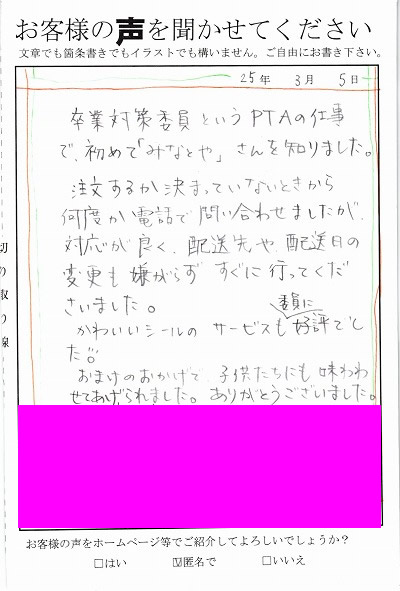 お客様の声を聞かせてください
文章でも箇条書きでもイラストでも構いません。ご自由にお書き下さい。
25年 3月 5日
卒業対策委員というPTAの仕事
で、初めて「みなとや」さんを知りました。
注文するか決まっていないときから
何度か電話で問い合わせましたが、
対応が良く、配送先や、配送日の
変更も嫌がらず すぐに行ってくだ
さいました。
かわいいシールの サービスも委員に好評でし
た。
おまけのおかげで、子供たちにも味わわ
せてあげられました。ありがとうございました。
切り取り線
お客様の声をホームページ等でご紹介してよろしいでしょうか？
□はい ☑匿名で □いいえ